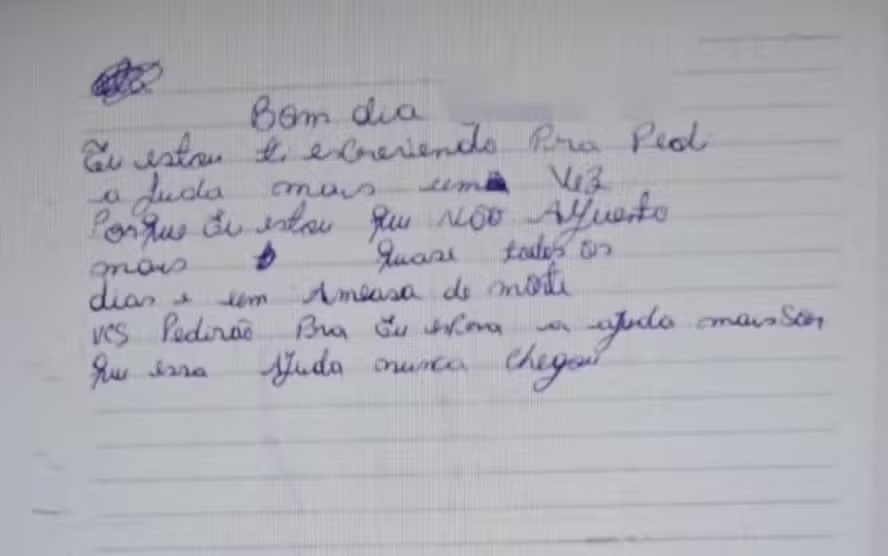 Bom dia
Eu estou ti escreviendo Pra Pedi
a Juda mais uma Vez
Porque Eu estou que NÃO AGuento
mais quase todos os
dias e um Ameasa de morte
vcs Pedirão Pra Eu a ajuda mais
que essa AJuda nunca chegou